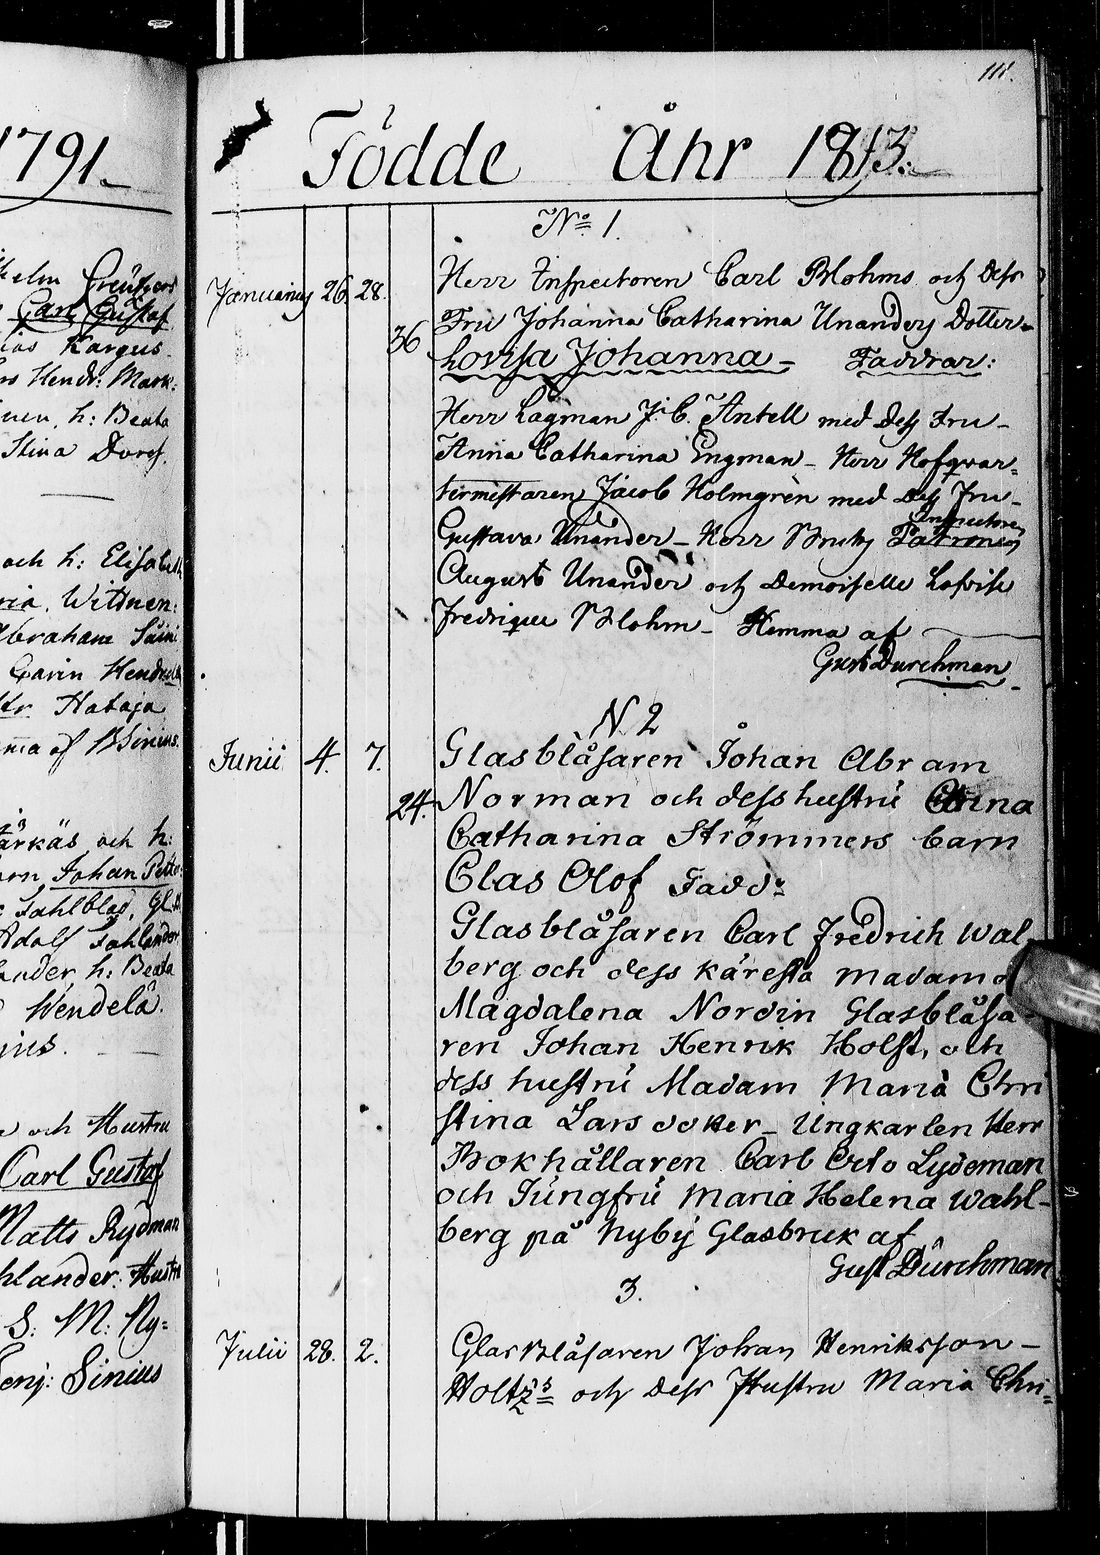 1791.
helm Creutzers
Carl Gustaf
Kargus.
Hendr: Mark:
h: Beata
Stina Doroth.
och h: Elisabeth
Wittnen:
Abraham
Carin Hendr
Hataja
af BSinius.
ärkäs och h:
Johan Petter
Fahlblad, Gl
Adolf Fahlander
lander, h: Beata
Wendelä.
och Hustru
Carl Gustaf
Matts Rydman
hlander. Hustru
S: M: Ny=
Benj: Sinius
111.
Födde Åhr 1813.
No 1.
Januarius 26. 28. Herr Inspectoren Carl Blohms och Dess
36 Fru Johanna Catharina Unanders Dotter
Lovisa Johanna – Faddrar:
Herr Lagman J: C. Antell med Dess Fru –
Anna Catharina Engman – Herr Hofqvar=
termestaren Jacob Holmgrén med Dess Fru –
Inspectoren
Gustava Unander – Herr Bruks Patronen
August Unander och Demoiselle Lovise
Fredrique Blohm – Hemma af
Gust Durchman
N. 2
Junii 4. 7. Glasblåsaren Johan Abram
24. Norman och dess hustru Anna
Catharina Strömmers barn
Clas Olof Fadd:
Glasblåsaren Carl Fredrich Wal-
berg och dess käresta madam
Magdalena Nordin Glasblåsa-
ren Johan Henrik Holst, och
dess hustru Madam Maria Chri
stina Lars dotter – Ungkarlen Herr
Bokhållaren Carl Otto Lydeman
och Jungfru Maria Helena Wahl-
berg på Nyby Glasbruk af
Gust Durchman
3.
Julii 28. 2. Glasblåsaren Johan Henriksson –
Holtz's och dess Hustru Maria Chri=